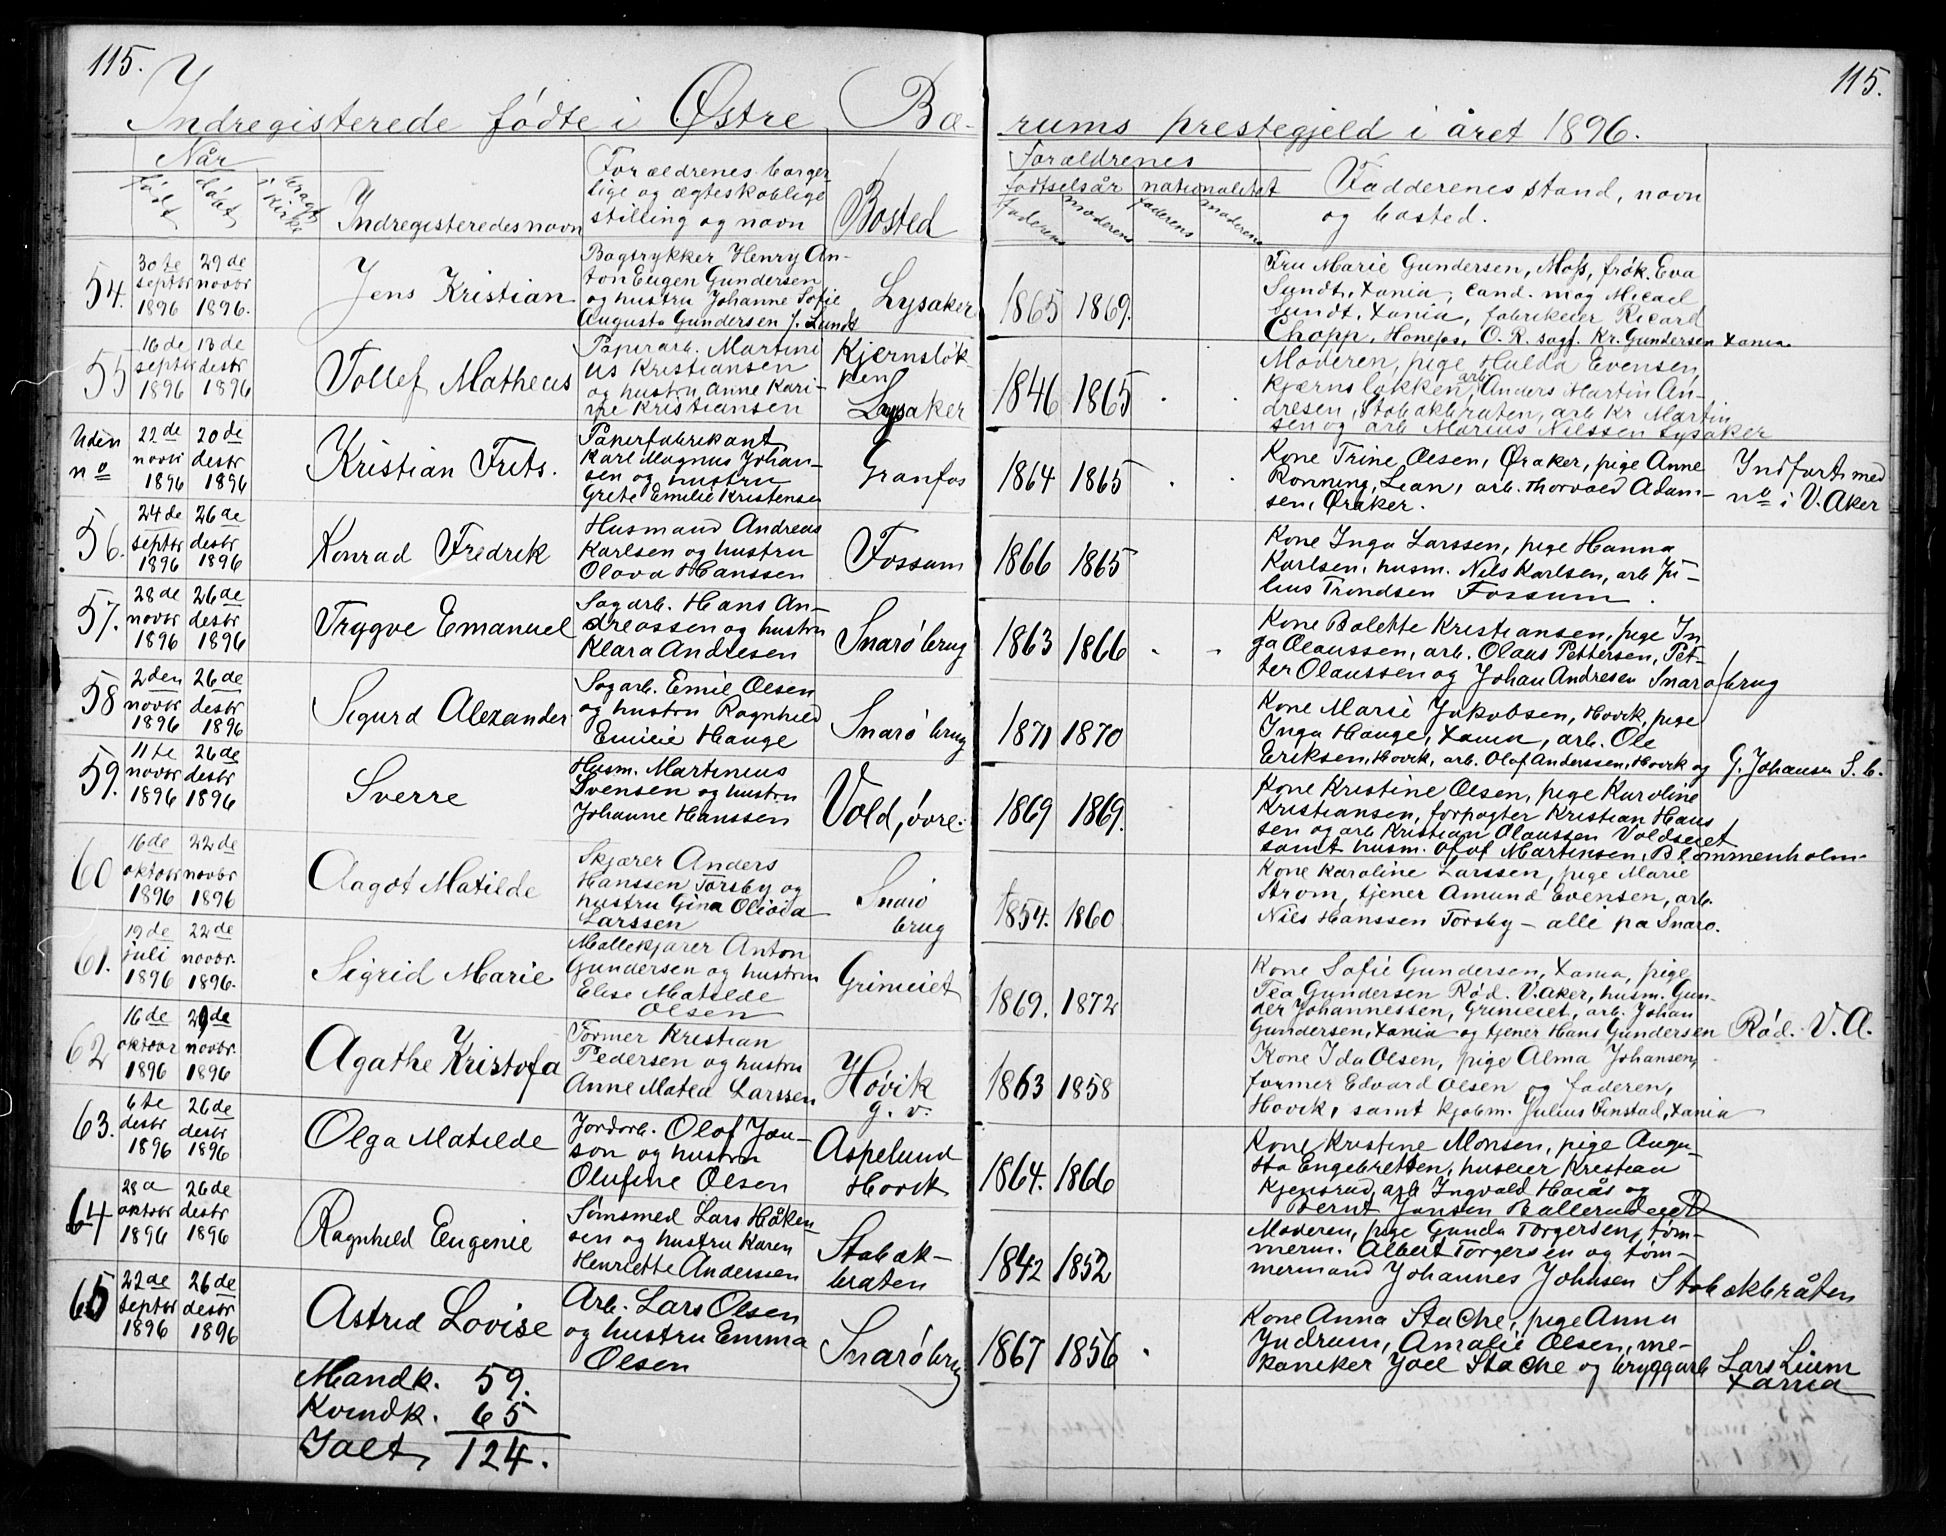 115.
115.
Indregisterede fødte i Østre Bæ-
rums prestegjeld i året 1896.
Når
født
døbt
bragt i kirke
Indregisteredes navn
Forældrenes borger-
lige og ægteskablige
stilling og navn
Bosted
Forældrenes
fødtselsår
nationalitet
faderens
moderens
faderens
moderens
Fadderenes stand, navn
og bosted.
54.
30te septbr 1896
29de novbr 1896.
Jens Kristian
Bogtrykker Henry An-
ton Eugen Gundersen
og hustru Johanne Sofie
Augusta Gundersen f. Lundt
Lysaker
1865
1869.
Fru Marie Gundersen, Moss, frøk. Eva
Lundt, Xania, cand. mag Micael
Lundt, Xania, fabrikeier Ricard
Chopp, Hønefos, O. R. sagf. Kr. Gundersen Xania
55
16de septbr 1896
13de desbr 1896
Tollef Matheus
Papirarb. Martini
us Kristiansen
og hustru Anne Kari-
ne Kristiansen
Kjernsløk-
ken
Lysaker
1846
1865
Moderen, pige Hulda Evensen,
Kjærnsløkken, arb. Anders Martin An-
dresen, Stabækbråten, arb Kr Martin
sen og arb Marius Nilssen Lysaker
Uden
no
22de novbr 1896
20de desbr 1896
Kristian Frits.
Papirfabrikant
Karl Magnus Johan-
sen og hustru
Grete Emilie Kristensen
Granfos
1864
1865
Kone Trine Olsen, Øraker, pige Anne
Rønning, Lean, arb. Thorvald Adam-
sen, Øraker.
Indført med
no i V. Aker
56.
24de septbr 1896
26de desbr 1896
Konrad Fredrik
Husmand Andreas
Karlsen og hustru
Olava Hanssen
Fossum
1866
1865
Kone Inga Larssen, pige Hanna
Karlsen, husm. Nils Karlsen, arb Ju-
lius Trondsen Fossum.
57.
28de novbr 1896
26de desbr 1896
Trygve Emanuel
Sagarb. Hans An-
dreassen og hustru
Klara Andresen
Snarøbrug
1863
1866
Kone Bolette Kristiansen, pige In
ga Olaussen, arb. Olaus Pettersen, Pet-
ter Olaussen og Johan Andresen Snarøbrug
58
2den novbr 1896
26de desbr 1896
Sigurd Alexander
Sagarb. Emil Olsen
og hustru Ragnhild
Emilie Hauge
Snarøbrug
1871
1870
Kone Marie Jakobsen, Høvik, pige
Inga Hauge, Xania, arb. Ole
Eriksen, Høvik, arb. Olaf Anderssen, Høvik og G. Johansen S. b.
59.
11te novbr 1896
26de desbr 1896
Sverre
Husm. Martinius
Svensen og hustru
Johanne Hanssen
Vold, øvre.
1869
1869.
Kone Kristine Olsen, pige Karoline
Kristiansen, forpagter Kristian Hans
sen og arb Kristian Olaussen Voldseiet
samt husm. Olaf Martinsen, Blommenholm
60
16de oktobr 1896
22de novbr 1896
Aagot Matilde
Skjærer Anders
Hanssen Torsby og
hustru Gina Olivia
Larssen
Snarø
brug
1854.
1860
Kone Karoline Larssen, pige Marie
Strøm, tjener Amund Evensen, arb.
Nils Hanssen Torsby – alle på Snarø.
61.
19de juli 1896
22de novbr. 1896.
Sigrid Marie
Møllekjører Anton
Gundersen og hustru
Elise Matilde
Olsen
Grinieiet
1869.
1872
Kone Sofie Gundersen, Xania, pige
Tea Gundersen Rød. V.Aker, husm. Gun-
der Johannessen, Grinieiet, arb. Johan
Gundersen, Xania og tjener Hans Gundersen Rød. V. A.
62
16de oktobr 1896
29de novbr. 1896
Agathe Kristofa
Former Kristian
Pedersen og hustru
Anne Matea Larssen
Høvik
g. v.
1863
1858
Kone Ida Olsen, pige Alma Johansen,
former Edvard Olsen og faderen,
Høvik, samt kjøbm. Julius Finstad, Xania
63.
6te desbr 1896
26de desbr 1896
Olga Matilde
Jordarb. Olof Jan-
son og hustru
Olufine Olsen
Aspelund
Høvik
1864.
1866
Kone Kristine Monsen, pige Augu-
sta Engebretsen, huseier Kristian
Kjensrud, arb Ingvald Haiås og
Bernt Jansen Ballerudeiet
64
28a oktobr 1896
26de desbr 1896
Ragnhild Eugenie
Sømsmed Lars Håken
sen og hustru Karen
Henriette Anderssen
Stabæk-
bråten
1842
1852
Moderen, pige Gunda Torgersen, tøm-
merm. Albert Torgersen og tøm-
mermand Johannes Johnsen Stabækbråten
65
22de septbr 1896
26de desbr 1896
Astrid Lovise
Arb. Lars Olsen
og hustru Emma
Olsen
Snarøbrug
1867
1856
Kone Anna Stache, pige Anna
Indrum, Amalie Olsen, me-
kaniker Joel Stache og bryggarb Lars Liem
Xania
Mandk. 59.
Kvindk. 65
Ialt, 124.